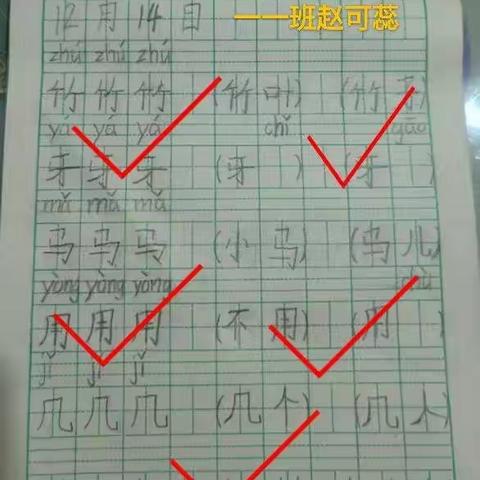 12月14日 一一班赵可蕊
zhú zhú zhú
竹竹竹 (竹叶) (竹子)
yá yá yá chǐ gāo
牙牙牙 (牙 ) (牙 )
mǎ mǎ mǎ
马马马 (小马) (马儿)
yòng yòng yòng
用用用 (不用) (用 )
jǐ jǐ jǐ
几几几 (几个) (几人)